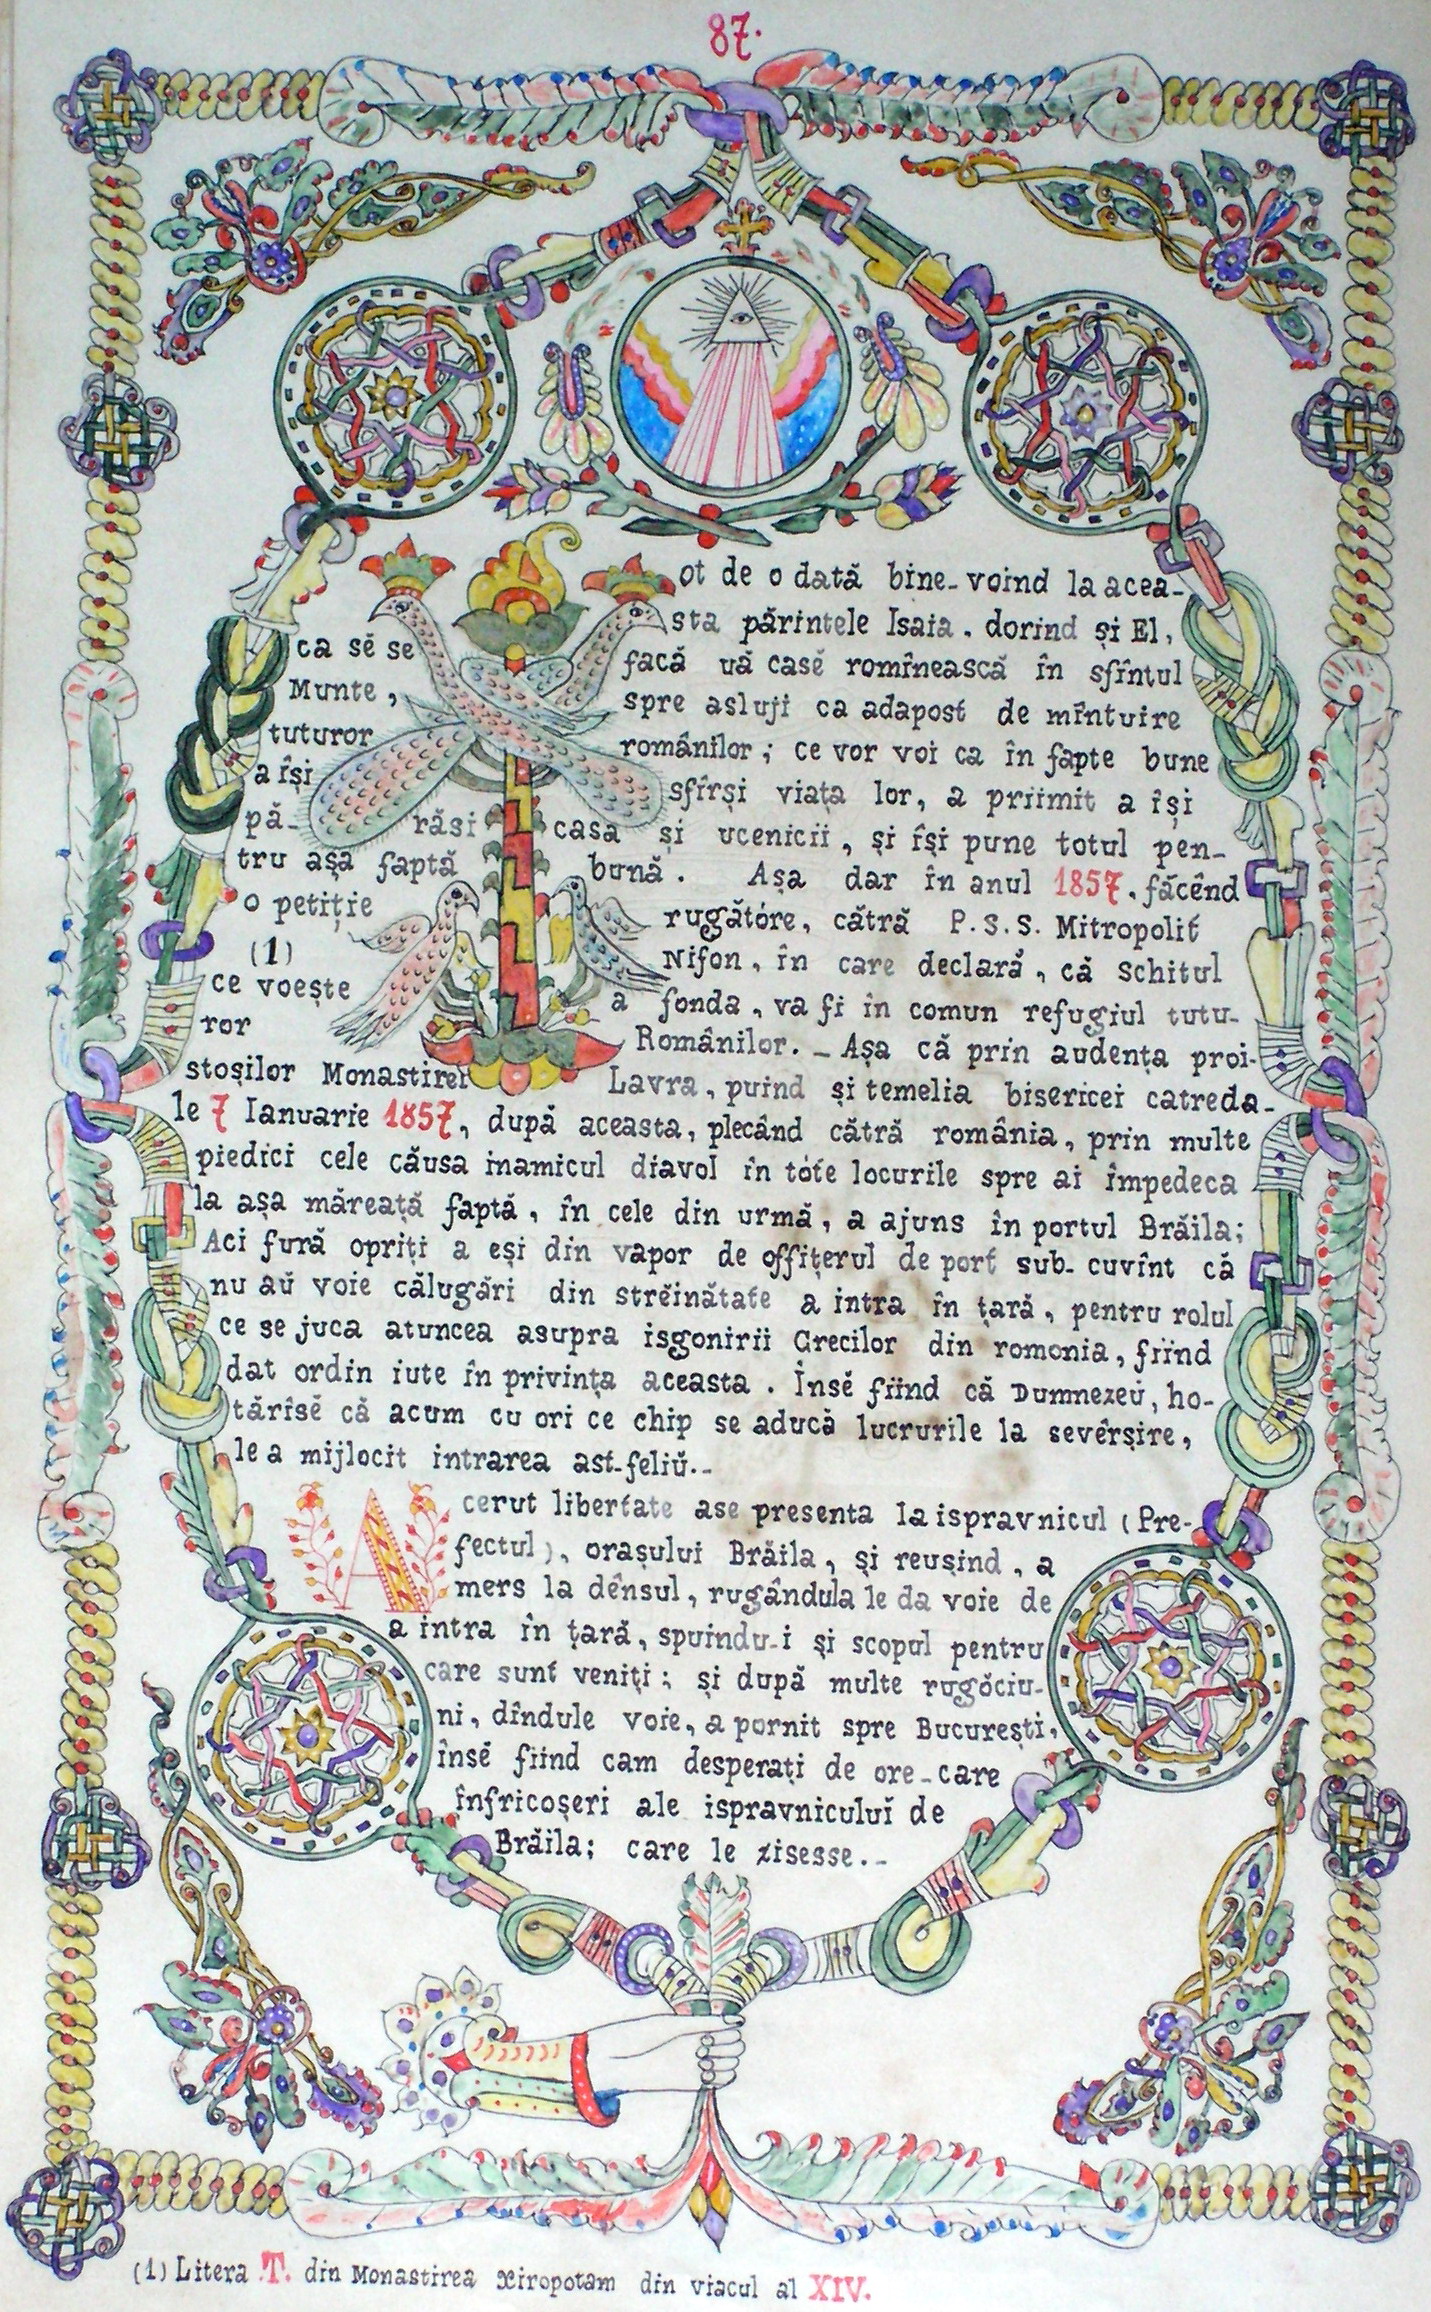 87.
ot de o dată bine-voind la acea-
sta părintele Isaia. dorind și El,
ca sĕ se facă uă casĕ romînească în sfîntul
Munte, spre asluji ca adapost de mîntuire
tuturor românilor; ce vor voi ca în fapte bune
a își sfîrși viața lor, a priimit a își
pă-răsi casa și ucenicii, și își pune totul pen-
tru așa faptă bună. Așa dar în anul 1857. făcênd
o petiție rugătóre, cătră P.S.S. Mitropolit
(1) Nifon, în care declară, că Schitul
ce voește a fonda, va fi în comun refugiul tutu-
ror Românilor.- Așa că prin audența proi-
stoșilor Monastirei Lavra, puind și temelia bisericei catreda-
le 7 Ianuarie 1857, după aceasta, plecând cătră românia, prin multe
piedici cele căusa inamicul diavol în tóte locurile spre ai împedeca
la așa măreață faptă, în cele din urmă, a ajuns în portul Brăila;
Aci fură opriți a eși din vapor de offițerul de port sub-cuvînt că
nu aŭ voie călugări din strĕinătate a intra în țară, pentru rolul
ce se juca atuncea asupra isgonirii Grecilor din romonia, fiind
dat ordin iute în privința aceasta. Însĕ fiind că Dumnezeŭ, ho-
tărîsĕ că acum cu ori ce chip se aducă lucrurile la sevêrșire,
le a mijlocit intrarea ast-feliŭ.-
A cerut libertate ase presenta la ispravnicul (Pre-
fectul), orașului Brăila, și reușind, a
mers la dênsul, rugândula le da voie de
a intra în țară, spuindu-i și scopul pentru
care sunt veniți; și după multe rugŏciu-
ni, dîndule voie, a pornit spre București,
însĕ fiind cam desperați de ore-care
înfricoșeri ale ispravnicului de
Brăila; care le zisesse.-
(1) Litera T. din Monastirea Xiropotam din viacul al XIV.